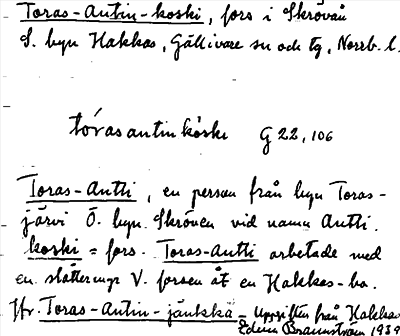 Toras-Antin-koski, fors i Skröván
S. byn Hakkas, Gällivare sn och tg, Norrb. l.
tórasantinkòski G 22, 106
Toras-Antti, en person från byn Toras-
järvi Ö. byn Skröven vid namn Antti.
koski = fors. Toras-Antti arbetade med
en slåtteräng V. forsen åt en Hakkas-bo.
Jfr. Toras-Antin-jänkkä - Uppgiften från Hakkas
Edvin Brännström 1939